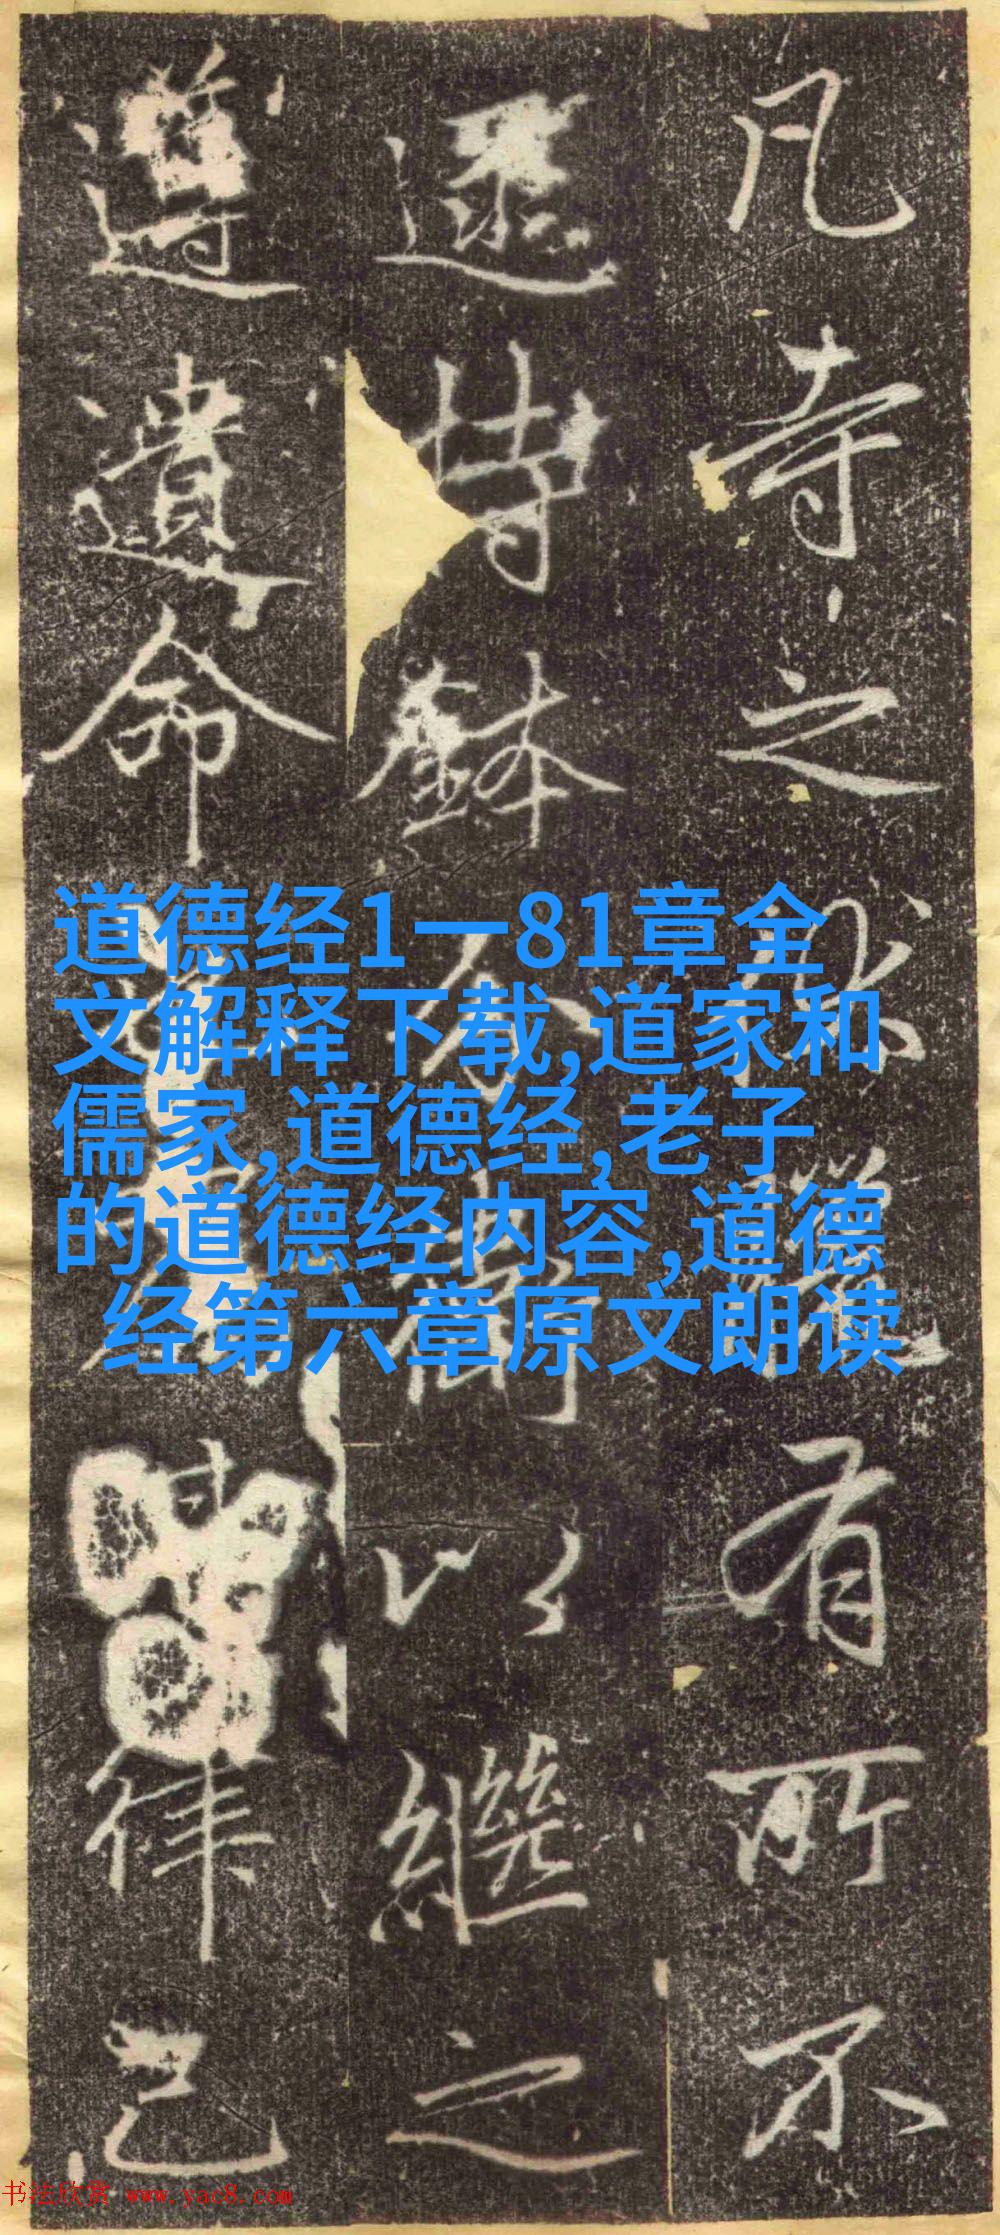 凡寺之有所不
持鉢以繼之
遵遺命律己
道德经1一81章全
文解释下载,道家和
儒家,道德经,老子
的道德经内容,道德
经第六章原文朗读
书法欣赏 www.yac8.com